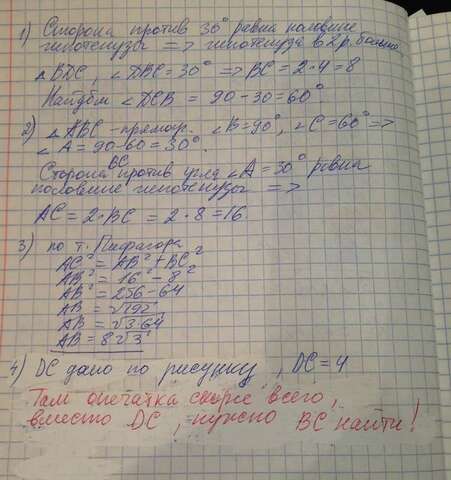 1) Сторона против 30° равна половине
гипотенузы => гипотенуза в 2 р. больше
△ BDC, ∠DBC = 30° => BC = 2·4 = 8
Найдём ∠DCB = 90 - 30 = 60°
2) △ ABC - прямоуг. ∠B = 90°, ∠C = 60° =>
∠A = 90-60 = 30°.
Сторона BC против угла ∠A = 30° равна
половине гипотенузы =>
AC = 2·BC = 2·8 = 16
3) по т. Пифагора
AC² = AB² + BC²
AB² = 16² - 8²
AB² = 256 - 64
AB = √192
AB = √3·64
AB = 8√3
4) DC дано по рисунку, DC = 4
Там опечатка скорее всего,
вместо DC, нужно BC найти!